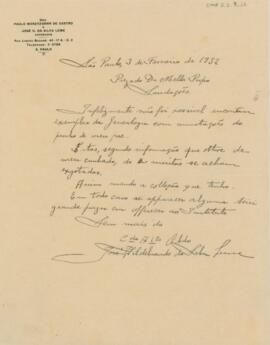 DRS.
PAULO MONTEZUMA DE CASTRO
E
JOSÉ H. DA SILVA LEME
ADVOGADOS
TELEPHONE
S. PAULO
São Paulo, 3 de Fevereiro de 1932
Prezado Dr. Mello
Saudações
Infelizmente não foi possivel encontrar
exemplar da Genealogia com annotações do
punho de meu pae.
Estes, segundo informação que obtive de
meu cunhado, de muitos se acham
exgotados.
Assim mando a collecção que tenho.
Em todo caso se apparecer algum terei
grande prazer em offerecer ao Instituto
Sem mais do
José Hildebrando da Silva Leme